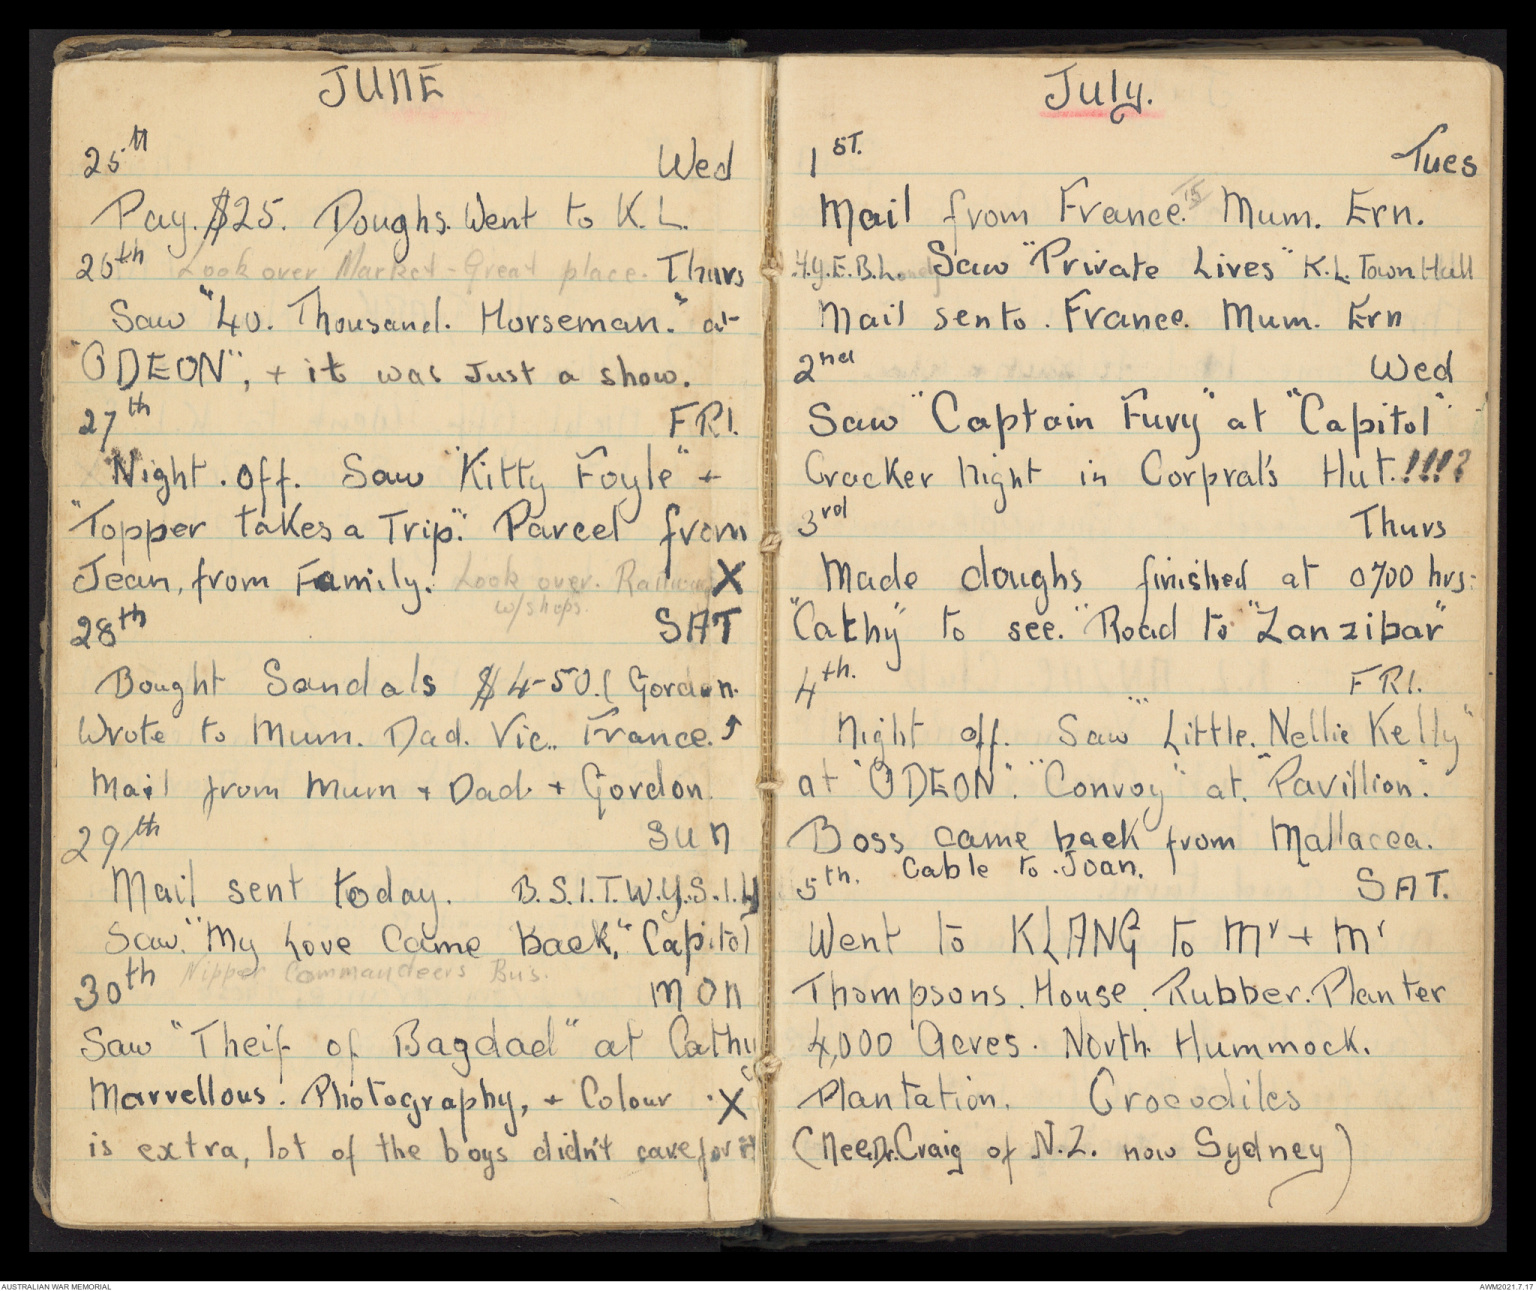 JUNE
25th Wed
Pay. $25. Doughs. Went to K.L.
26th Look over Market - Great place. Thurs
Saw "40. Thousand. Horseman." at
"ODEON", + it was Just a show.
27th FRI.
Night. off. Saw "Kitty Foyle" +
"Topper takes a Trip". Parcel from
Jean, from Family. Look over. Railway X
w/shops.
28th SAT
Bought Sandals $4-50. ( Gordon.
Wrote to Mum. Dad. Vic.. France.
Mail from Mum + Dad. + Gordon.
29th SUN
Mail sent today. B.S.I.T.W.Y.S.I.
Saw. "My Love Came Back," Capitol
30th Nipper Commandeers Bus. MON
Saw "Theif of Bagdad" at Cathy
Marvellous. Photography, + Colour X
is extra, lot of the boys didn't care for it
July.
1ST. Tues
Mail from France. 15 Mum. Ern.
Saw "Private Lives" K.L. Town Hall
Mail sent to. France. Mum. Ern
2nd Wed
Saw "Captain Fury" at "Capitol"
Cracker Night in Corpral's Hut.!!!?
3rd Thurs
Made doughs finished at 0700 hrs.
"Cathy" to see. "Road to "Zanzibar"
4th. FRI.
Night off. Saw "Little. Nellie Kelly"
at "ODEON". "Convoy" at. "Pavillion".
Boss came back from Mallacca.
Cable to Joan.
5th. SAT.
Went to KLANG to Mr + Mr
Thompsons. House. Rubber. Planter
4,000 Acres. North Hummock.
Plantation. Crocodiles
(Nee. Dr. Craig of N.Z. now Sydney)
AUSTRALIAN WAR MEMORIAL
AWM2021.7.17